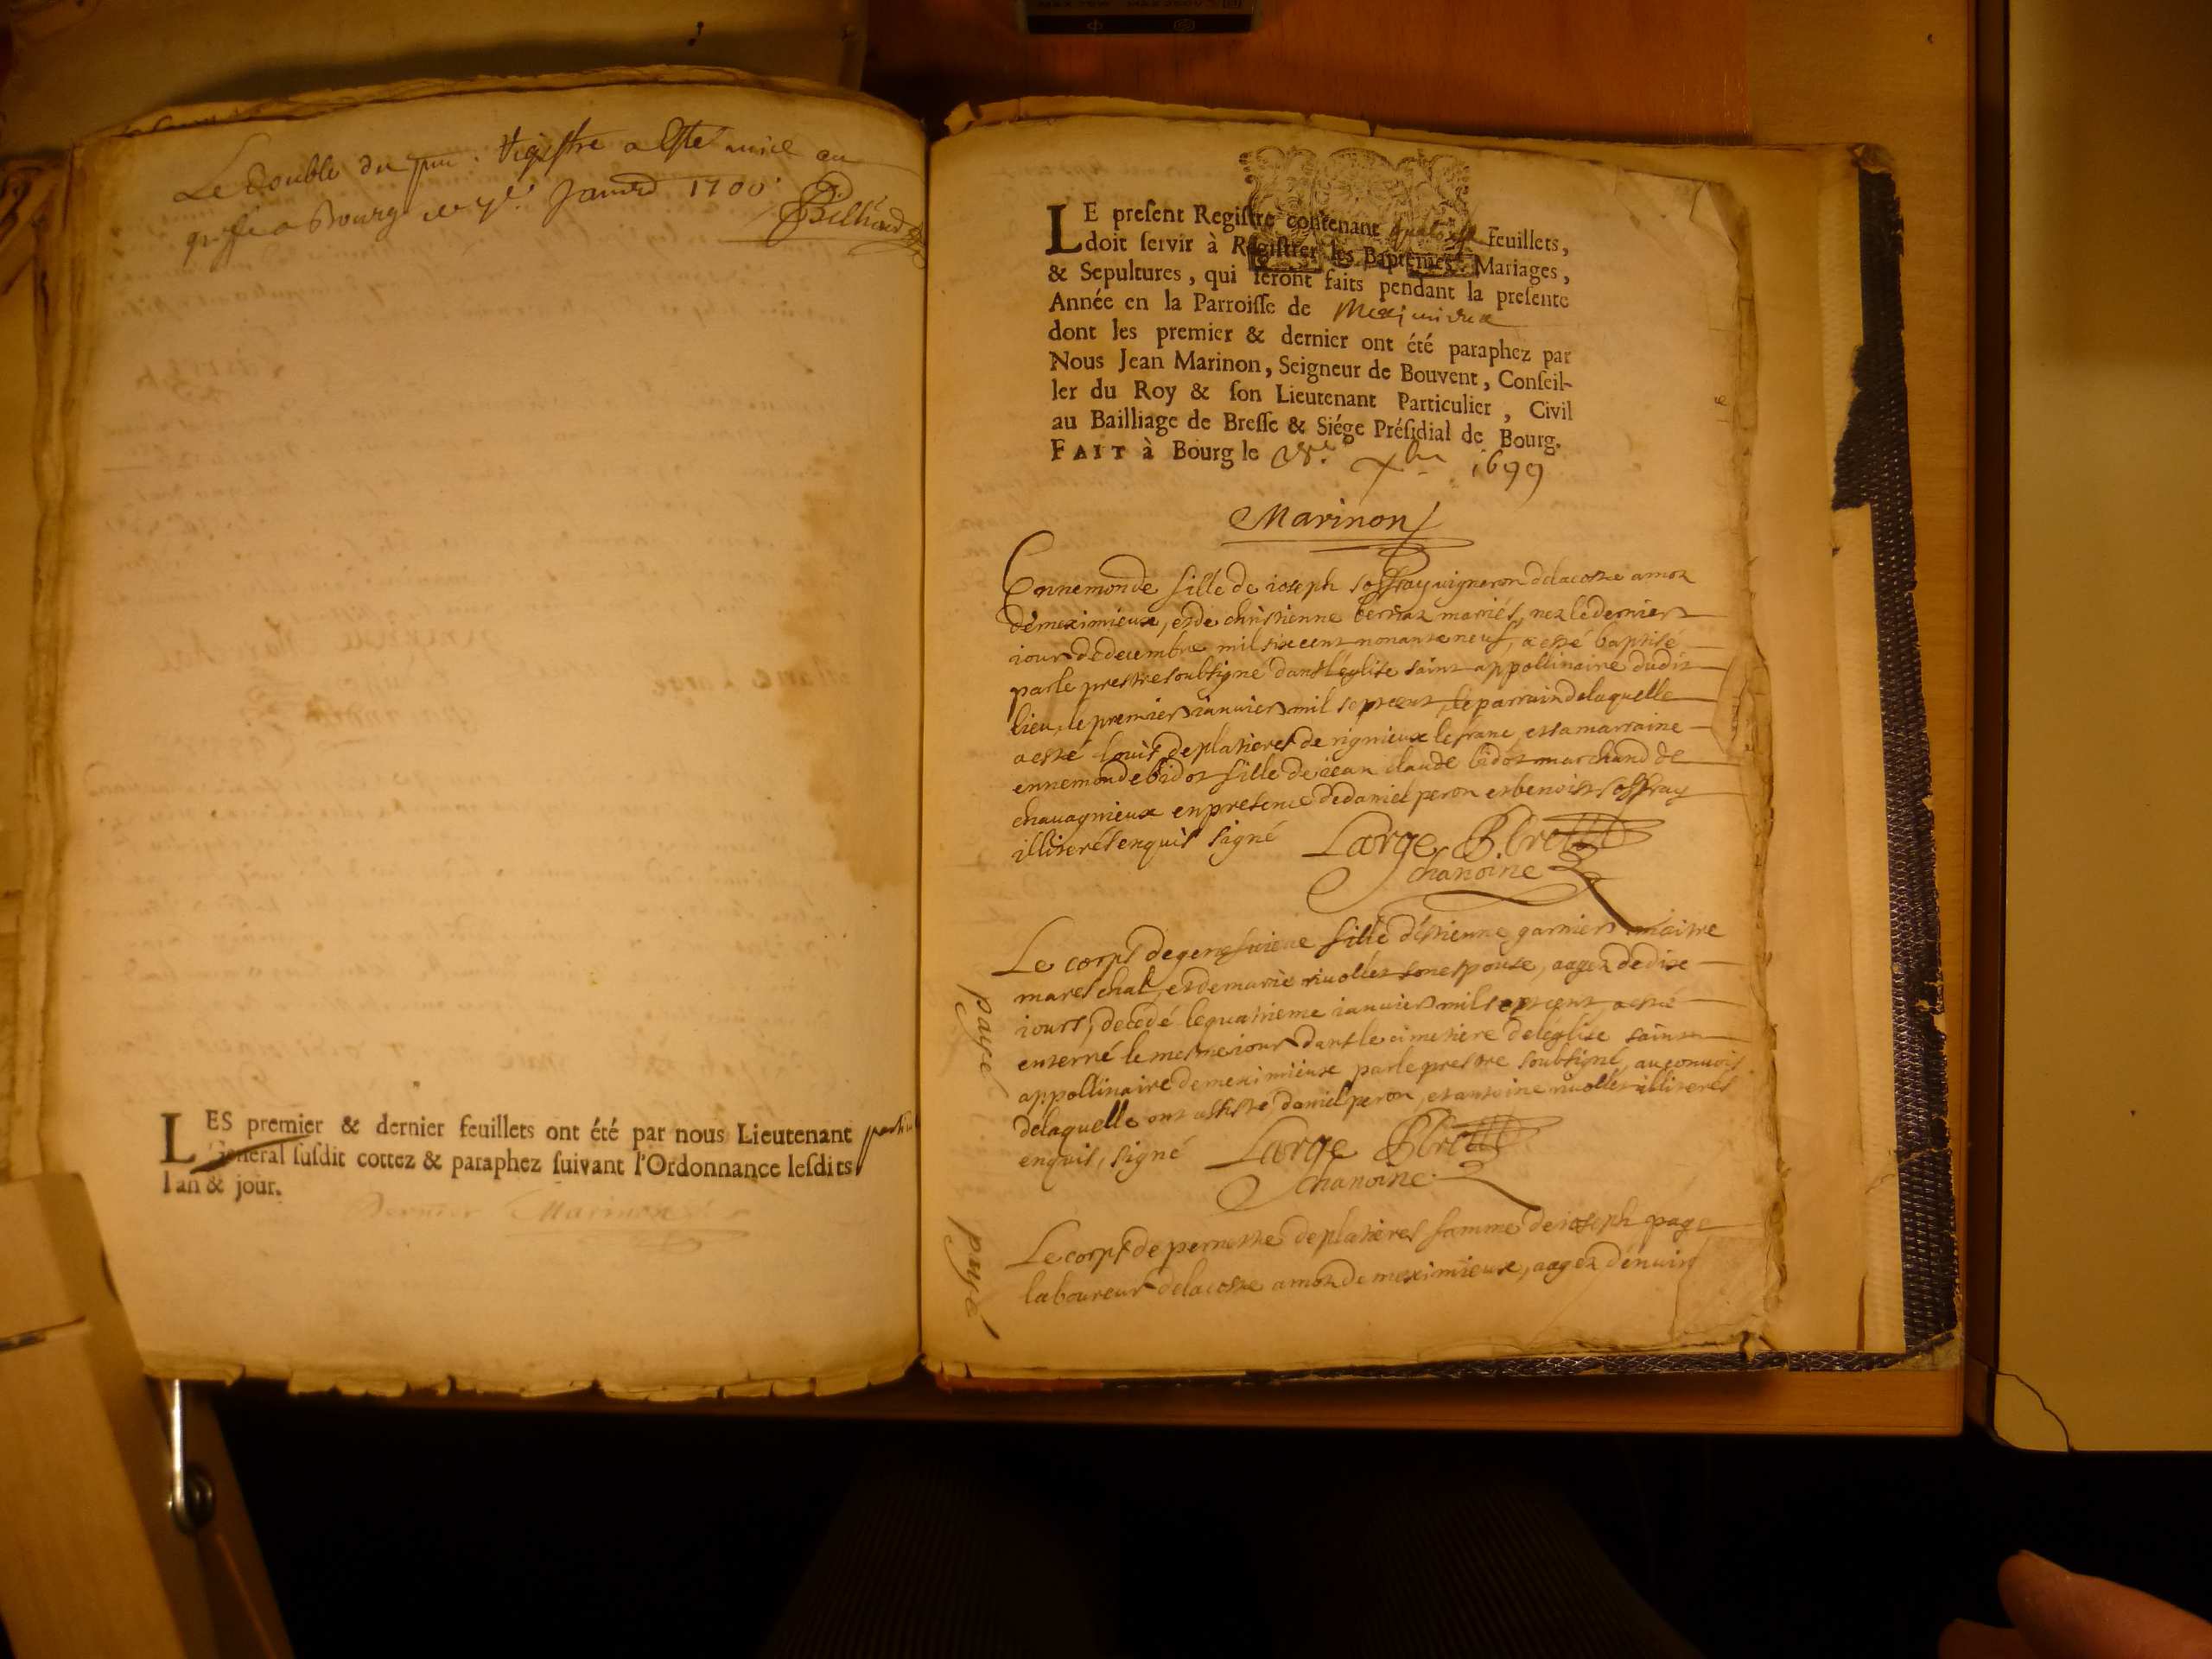 Le double du pnt. Registre a esté mice au
greffe a Bourg ce 7e. Janvier 1700.
Billiard
LES premier & dernier feuillets ont été par nous Lieutenant
General susdit cottez & paraphez suivant l'Ordonnance lesdits
l'an & jour.
Dernier Marinon
LE present Registre contenant feuillets,
doit servir à Registrer les Baptemes, Mariages,
& Sepultures, qui seront faits pendant la presente
Année en la Parroisse de Meximieux
dont les premier & dernier ont été paraphez par
Nous Jean Marinon, Seigneur de Bouvent, Conseil-
ler du Roy & son Lieutenant Particulier, Civil
au Bailliage de Bresse & Siége Présidial de Bourg.
FAIT à Bourg le xbre 1699
Marinon
Ennemonde fille de ioseph soffray vigneron delacoste amon
de meximieux, et de christienne mariés, nez le dernier
iour de decembre mil six cent nonante neuf, a esté baptisé
par le prestre soubsigné dans léglise saint appollinaire dudit
lieu, le premier ianvier mil sept cent, le parrain delaquelle
a esté louis deplatieres de rignieux le franc, et sa marraine
ennemonde bidot fille de iean claude bidot marchand de
chavagnieux en presence de daniel peron et benoist soffray
illiterés enquis signé Large
chanoine
payé
Le corps de genefvieve fille d'éstienne garnier maitre
mareschal, et de marie rivollet son espouse, aagez de dix
iours, decedé le quatrieme ianvier mil sept cent, a esté
enterré le mesme iour dans le cimetiere de léglise saint
appollinaire de meximieux par le prestre soubsigné, au convois
delaquelle ont assisté daniel peron, et antoine rivollet illiterés
enquis, signé Large
chanoine
payé
Le corps de pernette deplatieres famme de ioseph page
laboureur delacoste amon de meximieux, aagez